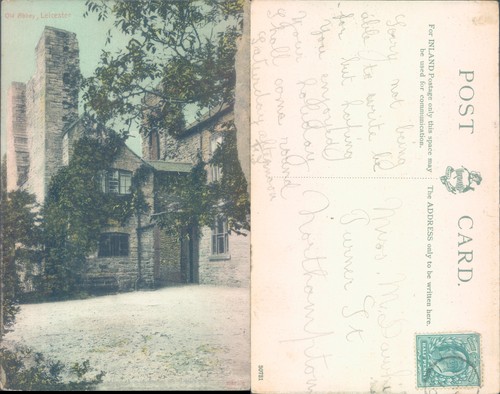 Old Priory, Leicester
POST CARD.
For INLAND Postage only this space may
be used for communication.
The ADDRESS only to be written here.
Sorry not being
able to write be
for but hoping
you enjoyed
your holiday
Shall come round
Saturday afternoon
Miss
Turner St
Northampton